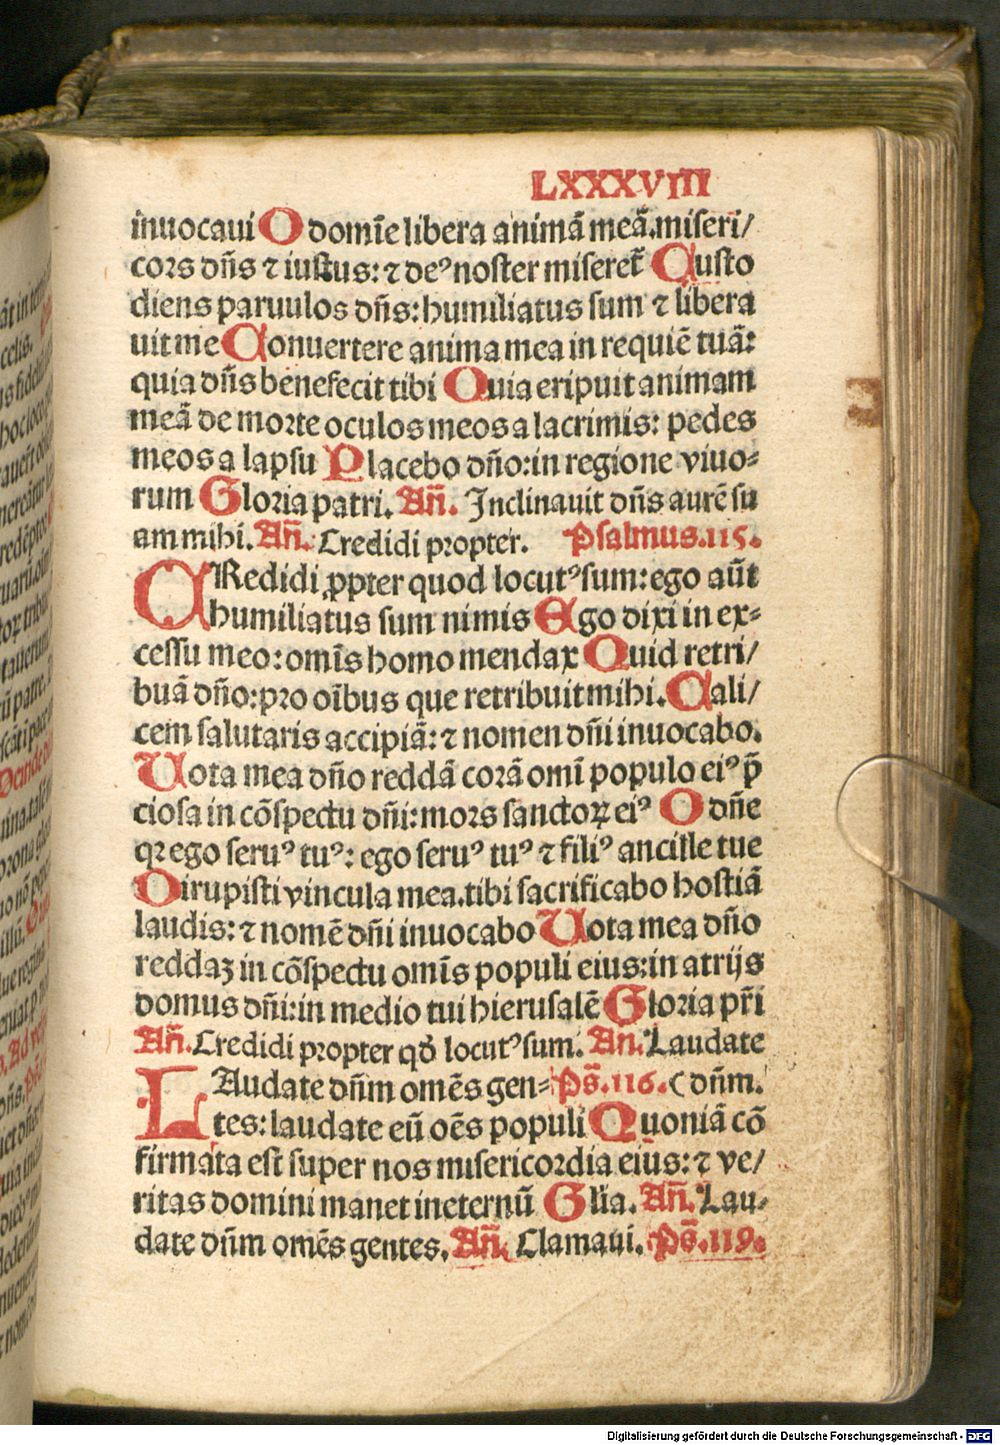 LXXXVIII
inuocaui O domīe libera animā meā.miseri/
cors dn̄s ⁊ iustus: ⁊ deꝰ noster miseret᷑ Custo
diens paruulos dn̄s: humiliatus sum ⁊ libera
uit me Conuertere anima mea in requiē tuā:
quia dn̄s benefecit tibi Quia eripuit animam
meā de morte oculos meos a lacrimis: pedes
meos a lapsu Placebo dn̄o: in regione viuo⸗
rum Gloria patri. An̄. Inclinauit dn̄s aurē su
am mihi. An̄. Credidi propter. Psalmus.115.
CRedidi ꝓpter quod locutꝰ sum: ego aūt
humiliatus sum nimis Ego dixi in ex⸗
cessu meo: omīs homo mendax Quid retri/
buā dn̄o: pro oībus que retribuit mihi. Cali/
cem salutaris accipiā: ⁊ nomen dn̄i inuocabo.
Uota mea dn̄o reddā corā omī populo eiꝰ p̄
ciosa in cōspectu dn̄i: mors sanctoꝝ eiꝰ O dn̄e
qꝛ ego seruꝰ tuꝰ: ego seruꝰ tuꝰ ⁊ filiꝰ ancille tue
Dirupisti vincula mea.tibi sacrificabo hostiā
laudis: ⁊ nomē dn̄i inuocabo Uota mea dn̄o
reddaꝫ in cōspectu omīs populi eius: in atrijs
domus dn̄i: in medio tui hierusalē Gloria pr̄i
An̄. Credidi propter qd̓ locutꝰ sum. An. Laudate
LAudate dn̄m omēs gen⸗ Ps̄.116. ( dn̄m.
tes: laudate eū oēs populi Quoniā cō
firmata est super nos misericordia eius: ⁊ ve/
ritas domini manet in eternū Glīa. An̄. Lau⸗
date dn̄m omēs gentes. An̄. Clamaui. Ps̄.119.
Digitalisierung gefördert durch die Deutsche Forschungsgemeinschaft - DFG